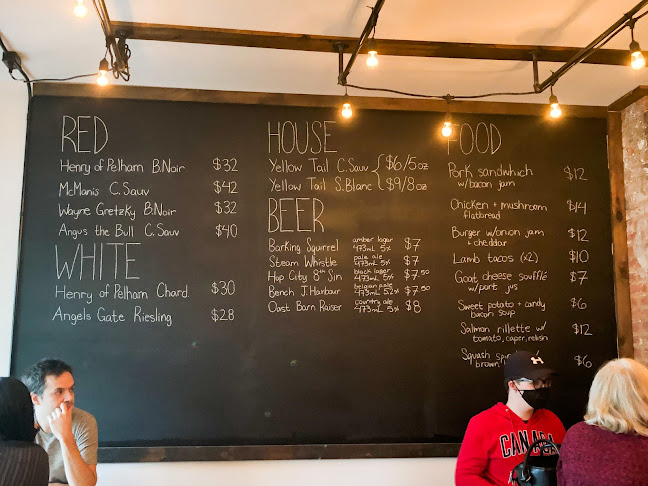 RED
Henry of Pelham B.Noir $32
McManis C.Sauv $42
Wayne Gretzky B.Noir $32
Angus the Bull C.Sauv $40
WHITE
Henry of Pelham Chard. $30
Angels Gate Riesling $28
HOUSE
Yellow Tail C.Sauv $6/5oz
Yellow Tail S.Blanc $9/8oz
BEER
Barking Squirrel amber lager 473mL 5% $7
Steam Whistle pale ale 473mL 5% $7
Hop City 8th Sin black lager 473mL 5% $7.50
Bench J.Harbour belgian pale 473mL 5.2% $7.50
Oast Barn Raiser country ale 473mL 5% $8
FOOD
Pork sandwhich $12
w/bacon jam
Chicken + mushroom $14
flatbread
Burger w/onion jam $12
+ cheddar
Lamb tacos (x2) $10
Goat cheese soufflé $7
w/port jus
Sweet potato + candy $6
bacon soup
Salmon rillette w/ $12
tomato, caper, relish
Squash $6
brown
CANADA